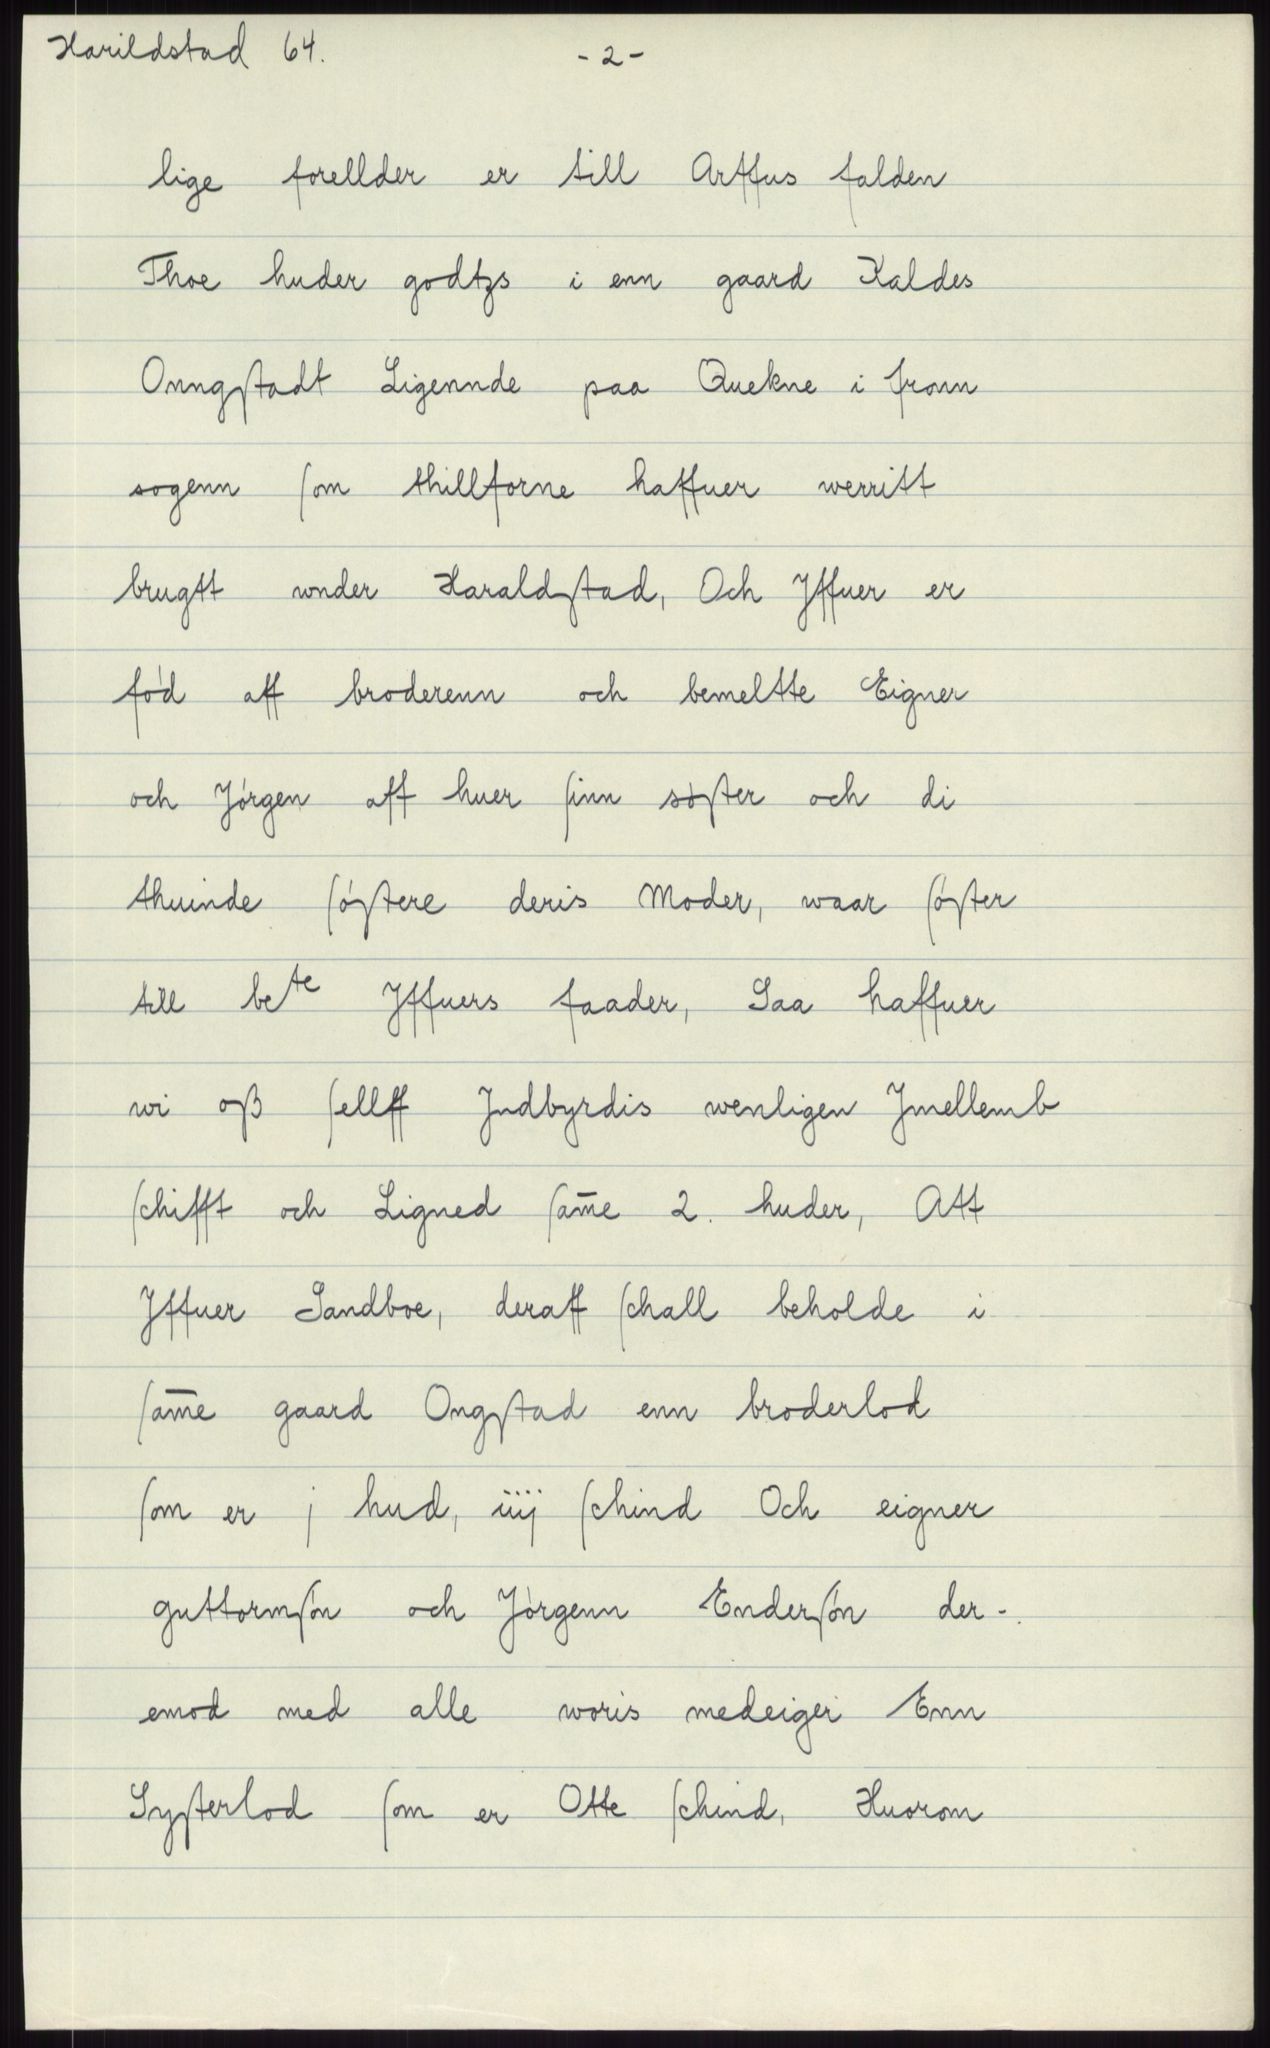 Harildstad 64. -2-
lige forellder er till Arffus falden
Thoe huder godtzs i enn gaard Kaldes
Onngstadt Ligennde paa Quekne i fronn
sogenn som thillforne haffuer werritt
brugtt wnder Haraldstad, Och Yffuer er
fód aff broderenn och bemeltte Eigner
och Jórgen aff huer sinn sóster och di
thuinde sóstere deris Moder, waar sóster
till bete Yffuers faader, Saa haffuer
wi oß sellff Jndbyrdis wenligen Jmellemb
schifft och Ligned sam̅e 2. huder, Att
Yffuer Sandboe, deraff schall beholde i
sam̅e gaard Ongstad enn broderlod
som er j hud, iiij schind Och eigner
guttormsón och Jórgenn Endersón der-
emod med alle woris medeigeri Enn
Systerlod som er Otte schind, Huorom